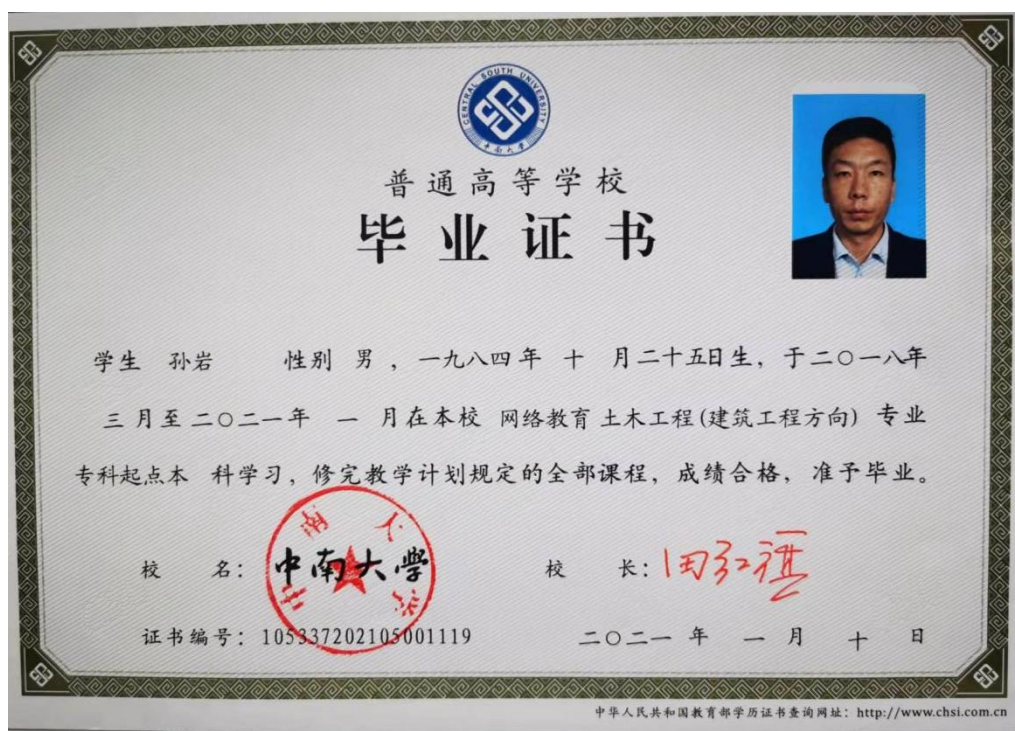 CENTRAL SOUTH UNIVERSITY
中南大学
普通高等学校
毕业证书
学生 孙岩 性别 男 , 一九八四年 十 月二十五日生, 于二〇一八年
三月至二〇二一年 一 月在本校 网络教育 土木工程(建筑工程方向) 专业
专科起点本 科学习, 修完教学计划规定的全部课程, 成绩合格, 准予毕业。
校 名: 中南大學
中南大学
校 长: 田红旗
证书编号: 105337202105001119
二〇二一 年 一 月 十 日
中华人民共和国教育部学历证书查询网址: http://www.chsi.com.cn